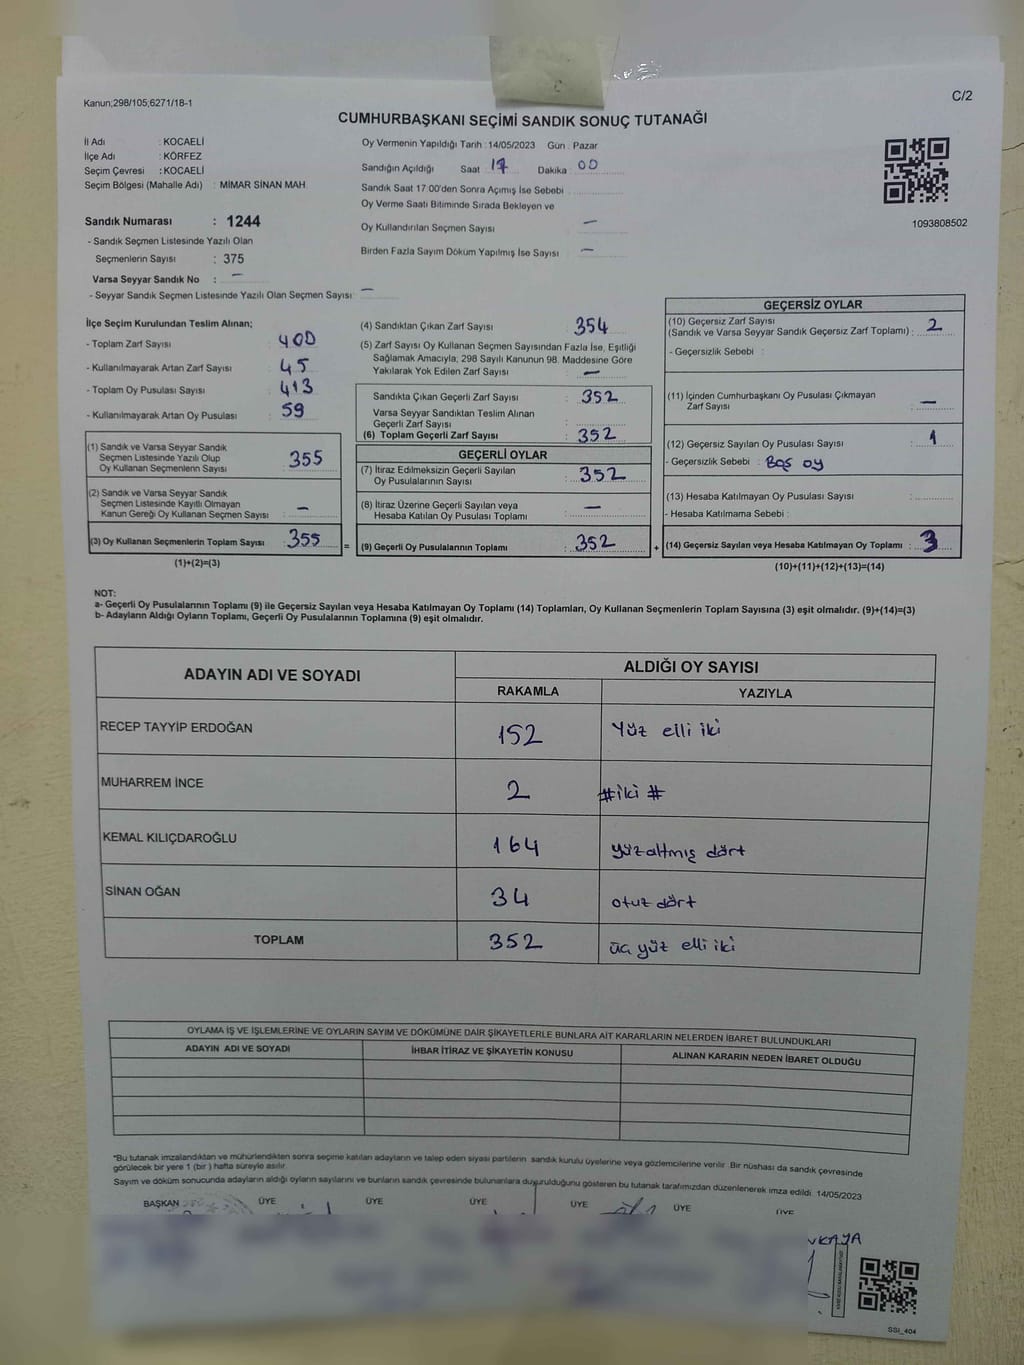 Kanun;298/105;6271/18-1
C/2
CUMHURBAŞKANI SEÇİMİ SANDIK SONUÇ TUTANAĞI
İl Adı : KOCAELİ
İlçe Adı : KÖRFEZ
Seçim Çevresi : KOCAELİ
Seçim Bölgesi (Mahalle Adı) : MİMAR SİNAN MAH
Sandık Numarası : 1244
- Sandık Seçmen Listesinde Yazılı Olan
Seçmenlerin Sayısı : 375
Varsa Seyyar Sandık No : —
- Seyyar Sandık Seçmen Listesinde Yazılı Olan Seçmen Sayısı: —
Oy Vermenin Yapıldığı Tarih : 14/05/2023 Gün : Pazar
Sandığın Açıldığı Saat 17 Dakika : 00
Sandık Saat 17:00'den Sonra Açımış İse Sebebi
Oy Verme Saati Bitiminde Sırada Bekleyen ve
Oy Kullandırılan Seçmen Sayısı —
Birden Fazla Sayım Döküm Yapılmış İse Sayısı —
1093808502
İlçe Seçim Kurulundan Teslim Alınan;
- Toplam Zarf Sayısı : 400
- Kullanılmayarak Artan Zarf Sayısı : 45
- Toplam Oy Pusulası Sayısı : 413
- Kullanılmayarak Artan Oy Pusulası : 59
(1) Sandık ve Varsa Seyyar Sandık
Seçmen Listesinde Yazılı Olup
Oy Kullanan Seçmenlerin Sayısı : 355
(2) Sandık ve Varsa Seyyar Sandık
Seçmen Listesinde Kayıtlı Olmayan
Kanun Gereği Oy Kullanan Seçmen Sayısı : —
(3) Oy Kullanan Seçmenlerin Toplam Sayısı : 355 =
(1)+(2)=(3)
(4) Sandıktan Çıkan Zarf Sayısı 354
(5) Zarf Sayısı Oy Kullanan Seçmen Sayısından Fazla İse, Eşitliği
Sağlamak Amacıyla; 298 Sayılı Kanunun 98. Maddesine Göre
Yakılarak Yok Edilen Zarf Sayısı : —
Sandıkta Çıkan Geçerli Zarf Sayısı : 352
Varsa Seyyar Sandıktan Teslim Alınan
Geçerli Zarf Sayısı :
(6) Toplam Geçerli Zarf Sayısı : 352
GEÇERLİ OYLAR
(7) İtiraz Edilmeksizin Geçerli Sayılan
Oy Pusulalarının Sayısı : 352
(8) İtiraz Üzerine Geçerli Sayılan veya
Hesaba Katılan Oy Pusulası Toplamı : —
(9) Geçerli Oy Pusulalarının Toplamı : 352 +
GEÇERSİZ OYLAR
(10) Geçersiz Zarf Sayısı
(Sandık ve Varsa Seyyar Sandık Geçersiz Zarf Toplamı) : 2
- Geçersizlik Sebebi :
(11) İçinden Cumhurbaşkanı Oy Pusulası Çıkmayan
Zarf Sayısı : —
(12) Geçersiz Sayılan Oy Pusulası Sayısı : 1
- Geçersizlik Sebebi : Boş oy
(13) Hesaba Katılmayan Oy Pusulası Sayısı :
- Hesaba Katılmama Sebebi :
(14) Geçersiz Sayılan veya Hesaba Katılmayan Oy Toplamı : 3
(10)+(11)+(12)+(13)=(14)
NOT:
a- Geçerli Oy Pusulalarının Toplamı (9) ile Geçersiz Sayılan veya Hesaba Katılmayan Oy Toplamı (14) Toplamları, Oy Kullanan Seçmenlerin Toplam Sayısına (3) eşit olmalıdır. (9)+(14)=(3)
b- Adayların Aldığı Oyların Toplamı, Geçerli Oy Pusulalarının Toplamına (9) eşit olmalıdır.
ADAYIN ADI VE SOYADI ALDIĞI OY SAYISI
RAKAMLA YAZIYLA
RECEP TAYYİP ERDOĞAN 152 Yüz elli iki
MUHARREM İNCE 2 #iki #
KEMAL KILIÇDAROĞLU 164 yüzaltmış dört
SİNAN OĞAN 34 otuz dört
TOPLAM 352 üç yüz elli iki
OYLAMA İŞ VE İŞLEMLERİNE VE OYLARIN SAYIM VE DÖKÜMÜNE DAİR ŞİKAYETLERLE BUNLARA AİT KARARLARIN NELERDEN İBARET BULUNDUKLARI
ADAYIN ADI VE SOYADI İHBAR İTİRAZ VE ŞİKAYETİN KONUSU ALINAN KARARIN NEDEN İBARET OLDUĞU
*Bu tutanak imzalandıktan ve mühürlendikten sonra seçime katılan adayların ve talep eden siyasi partilerin sandık kurulu üyelerine veya gözlemcilerine verilir. Bir nüshası da sandık çevresinde
görülecek bir yere 1 (bir) hafta süreyle asılır.
Sayım ve döküm sonucunda adayların aldığı oyların sayılarını ve bunların sandık çevresinde bulunanlara duyurulduğunu gösteren bu tutanak tarafımızdan düzenlenerek imza edildi. 14/05/2023
BAŞKAN ÜYE ÜYE ÜYE ÜYE ÜYE ÜYE
SSI_404